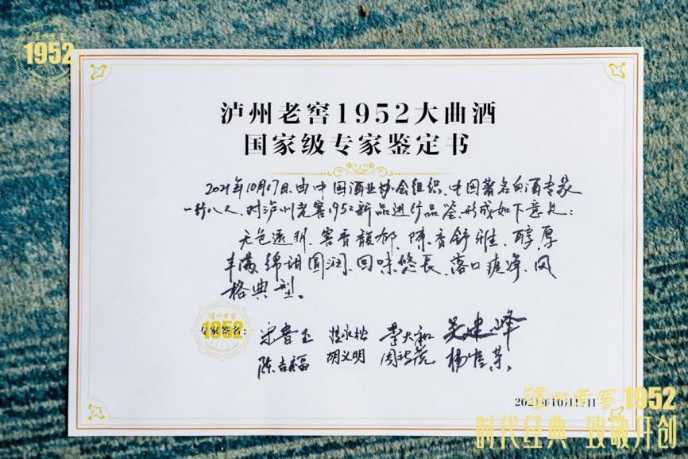 1952
泸州老窖1952大曲酒
国家级专家鉴定书
2021年10月17日,由中国酒业协会组织,中国著名白酒专家
一行八人,对泸州老窖1952新品进行品鉴,形成如下意见:
无色透明、窖香馥郁、陈香舒雅、醇厚
丰满、绵甜圆润、回味悠长、落口爽净、风
格典型。
1952
专家签名:
李大和 吴建峰
陈吉福 胡义明
2021年10月17日
泸州老窖1952
时代经典 致敬开创